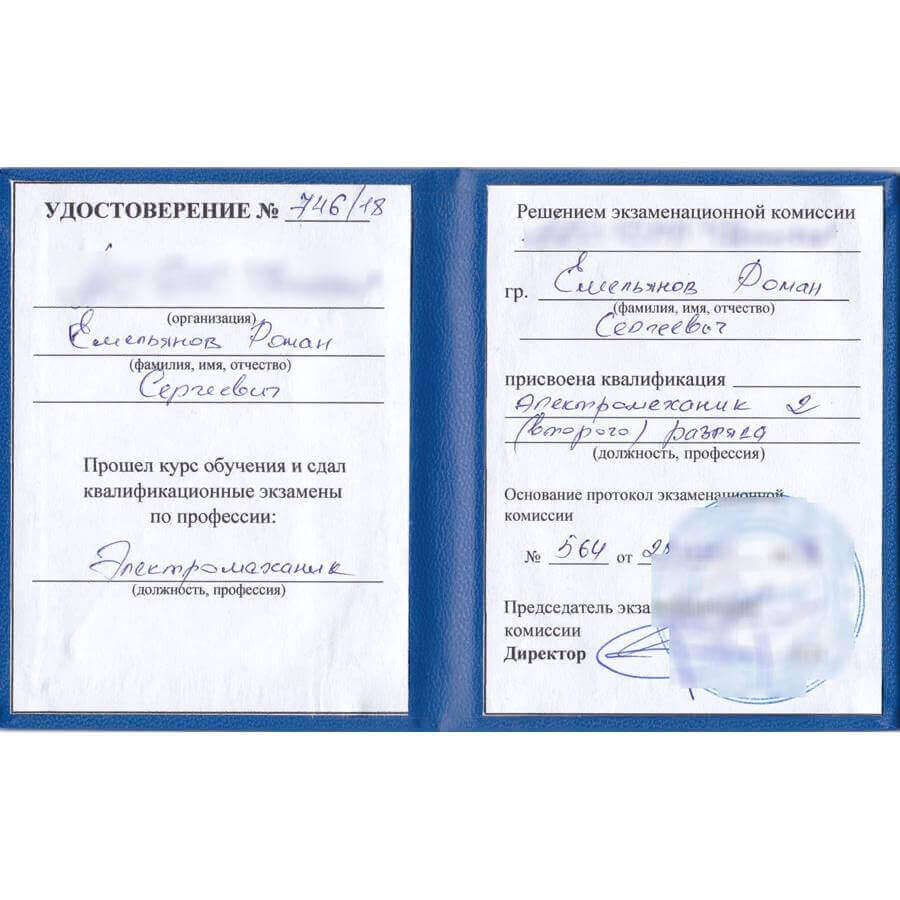 УДОСТОВЕРЕНИЕ № 746/18
(организация)
Емельянов Роман
(фамилия, имя, отчество)
Сергеевич
Прошел курс обучения и сдал
квалификационные экзамены
по профессии:
Электромеханик
(должность, профессия)
Решением экзаменационной комиссии
гр. Емельянов Роман
(фамилия, имя, отчество)
Сергеевич
присвоена квалификация
Электромеханик 2
(второго) разряда
(должность, профессия)
Основание протокол экзаменационной
комиссии
№ 564 от
Председатель
комиссии
Директор